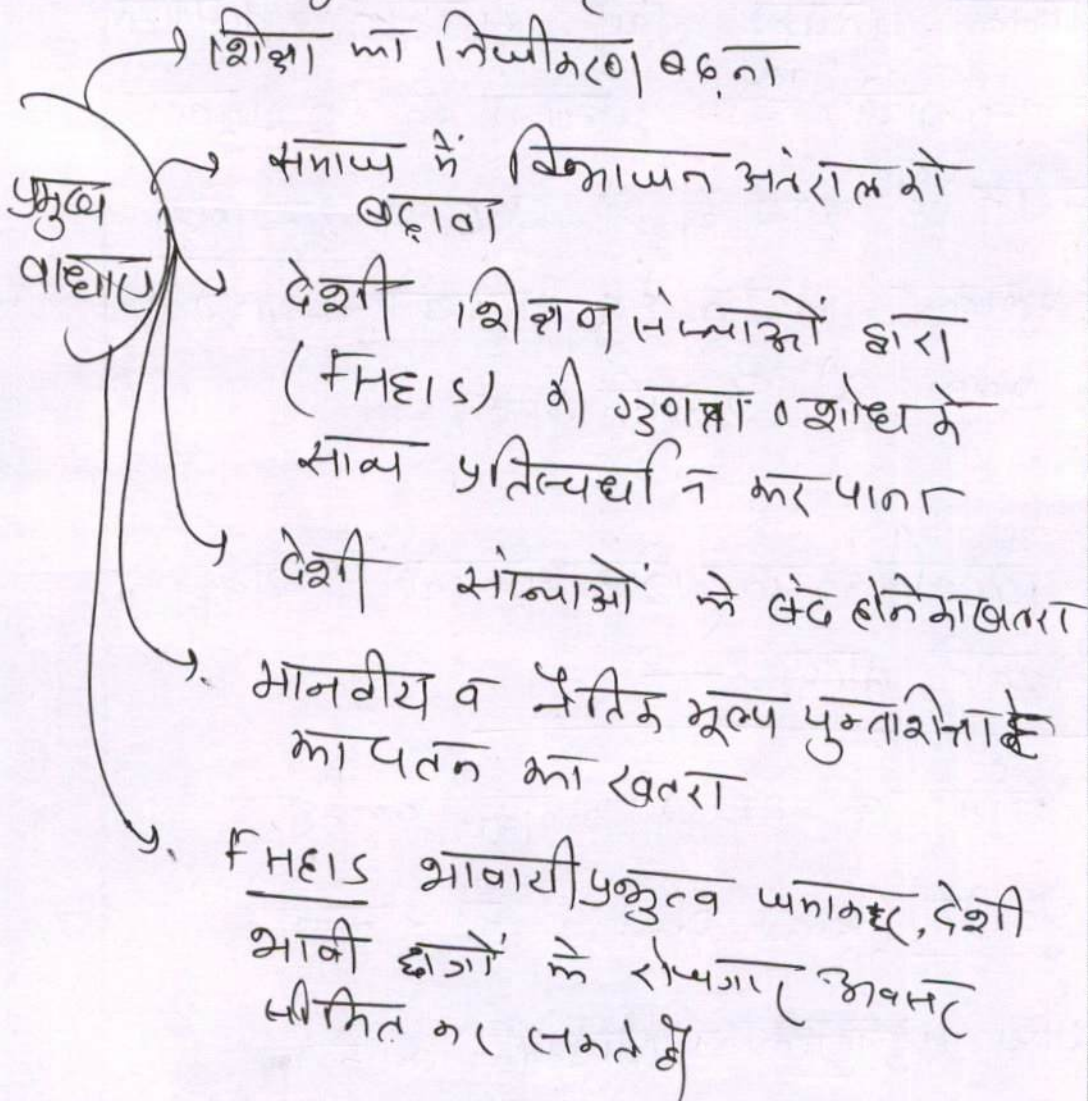 शिक्षा का निजीकरण बढ़ना
समाज में विभाजन अंतराल को
बढ़ावा
प्रमुख
बाधाएं
देशी शिक्षण संस्थाओं द्वारा
(FHEIS) की गुणवत्ता व शोध के
साथ प्रतिस्पर्धा न कर पाना
देशी संस्थाओं के बंद होने का खतरा
मानवीय व नैतिक मूल्य युक्त शिक्षा
का पतन का खतरा
FHEIS भाषायी प्रभुत्व जमाकर, देशी
भाषी छात्रों के रोजगार अवसर
सीमित कर सकते हैं